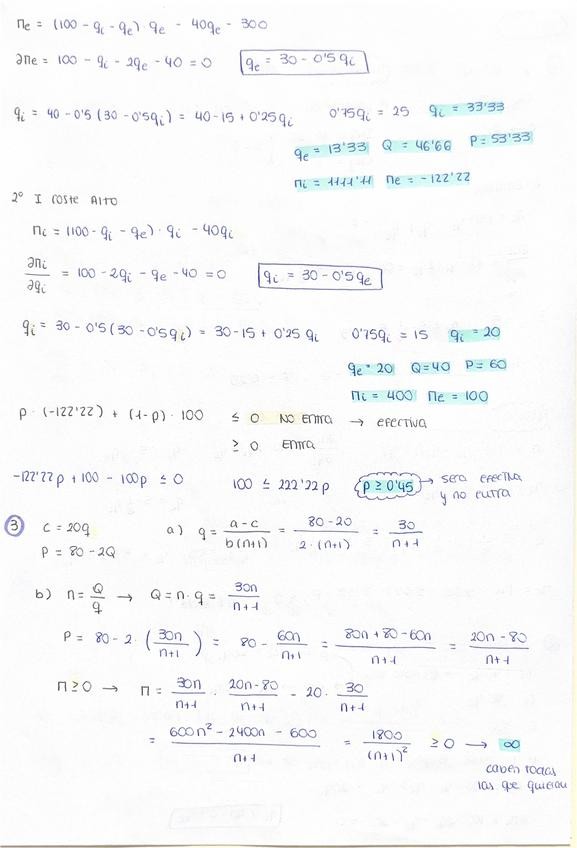 Πe = (100 - qi - qe) · qe - 40qe - 300
∂Πe = 100 - qi - 2qe - 40 = 0 qe = 30 - 0'5 qi
qi = 40 - 0'5 (30 - 0'5qi) = 40 - 15 + 0'25 qi 0'75qi = 25 qi = 33'33
qe = 13'33 Q = 46'66 P = 53'33
Πi = 1111'11 Πe = -122'22
2º I COSTE ALTO
Πi = (100 - qi - qe) · qi - 40qi
∂Πi/∂qi = 100 - 2qi - qe - 40 = 0 qi = 30 - 0'5 qe
qi = 30 - 0'5 (30 - 0'5qi) = 30 - 15 + 0'25 qi 0'75qi = 15 qi = 20
qe = 20 Q = 40 P = 60
Πi = 400 Πe = 100
p · (-122'22) + (1-p) · 100 ≤ 0 NO ENTRA → EFECTIVA
≥ 0 ENTRA
-122'22p + 100 - 100p ≤ 0 100 ≤ 222'22p p ≥ 0'45 → sera efectiva
y no entra
3 C = 20q a) q = (a - c)/(b(n+1)) = (80 - 20)/(2·(n+1)) = 30/(n+1)
P = 80 - 2Q
b) n = Q/q → Q = n · q = 30n/(n+1)
P = 80 - 2 · (30n/(n+1)) = 80 - 60n/(n+1) = (80n + 80 - 60n)/(n+1) = (20n - 80)/(n+1)
Π ≥ 0 → Π = 30n/(n+1) · (20n - 80)/(n+1) - 20 · 30/(n+1)
= (600n² - 2400n - 600)/(n+1) = 1800/(n+1)² ≥ 0 → ∞
caben todas
las que quieran